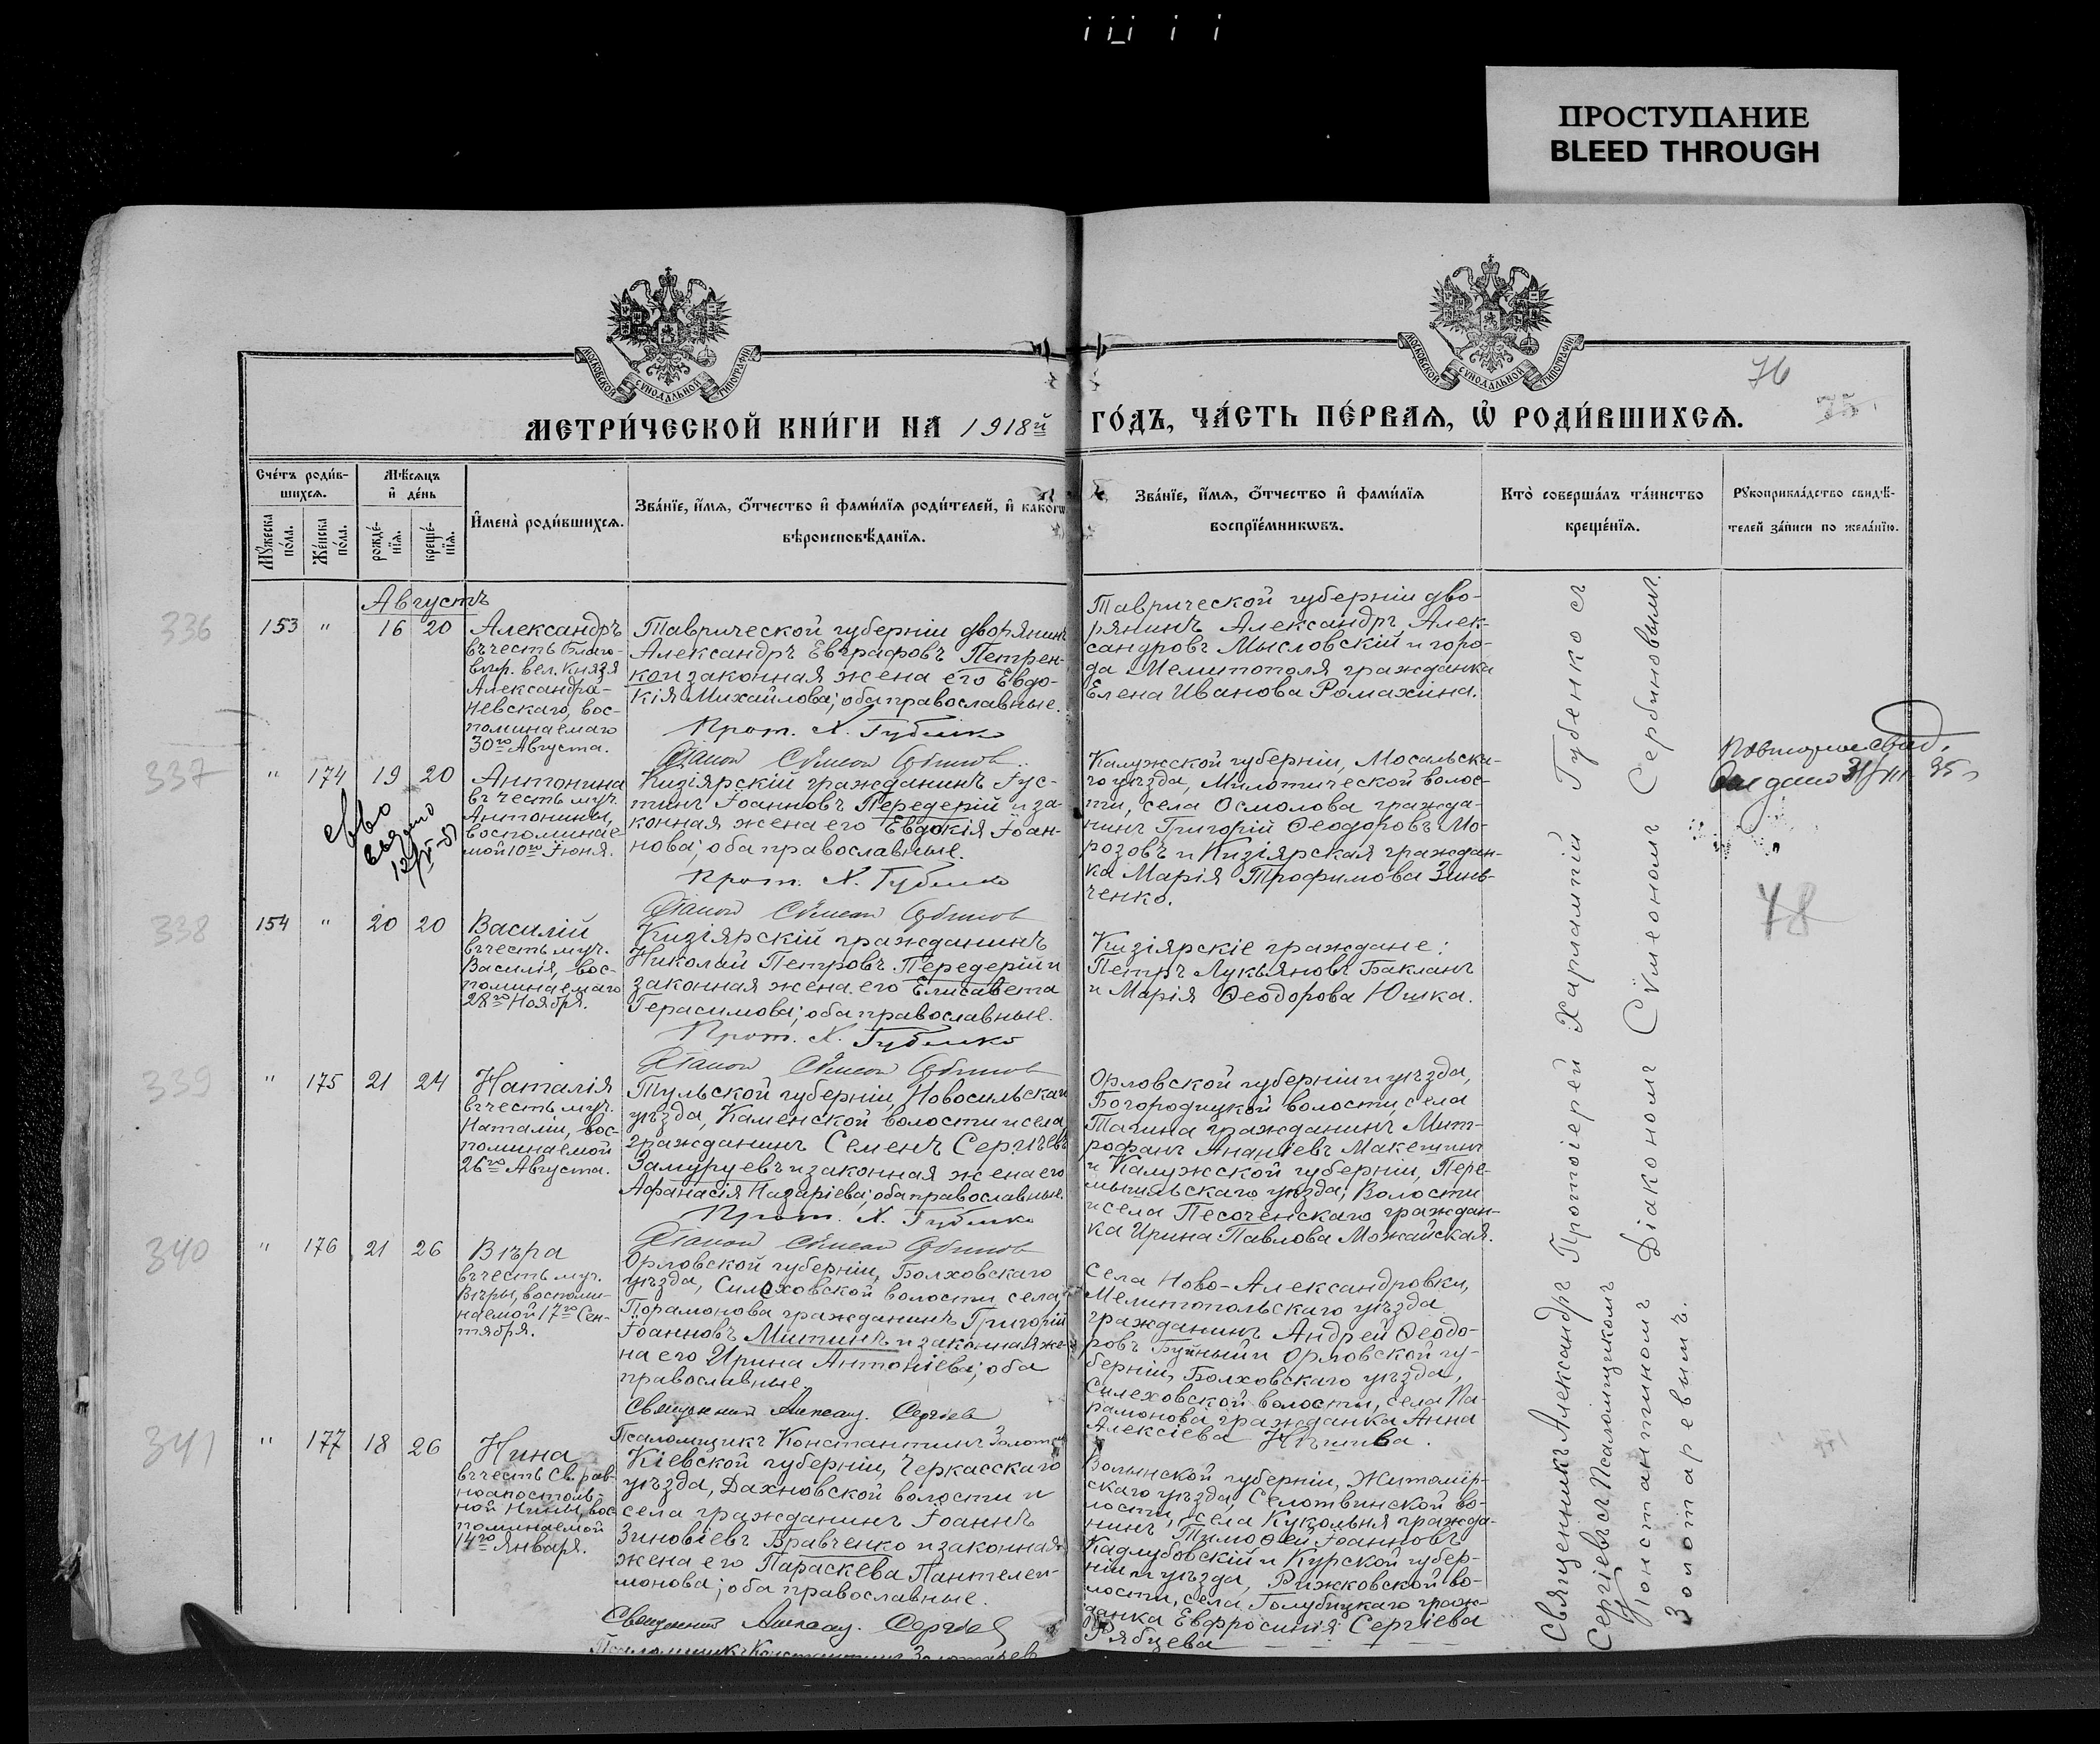 ПРОСТУПАНИЕ
BLEED THROUGH
МОСКОВСКОЙ СУНОДАЛЬНОЙ ТИПОГРАФІИ
МОСКОВСКОЙ СУНОДАЛЬНОЙ ТИПОГРАФІИ
76
75
МЕТРИ́ЧЕСКОЙ КНИ́ГИ НА 1918й
ГО́ДЪ, ЧА́СТЬ ПЕ́РВАѦ, Ѿ РОДИ́ВШИХСѦ.
Сче́тъ роди́в-
шихсѧ.
Мѣ́сѧцъ
и҆ де́нь
Мꙋ́жеска
по́ла.
Же́нска
по́ла.
рожде́-
нїѧ.
креще́-
нїѧ.
И҆мена̀ роди́вшихсѧ.
Зва́нїе, и҆́мѧ, ѻ҆́тчество и҆ фами́лїѧ роди́телей, и҆ како́гѡ
вѣроисповѣ́данїѧ.
Зва́нїе, и҆́мѧ, ѻ҆́тчество и҆ фами́лїѧ
воспрїе́мникѡвъ.
Кто̀ соверша́лъ та́инство
креще́нїѧ.
Рꙋкоприкла́дство свидѣ́-
телей за́писи по жела́нїю.
Августъ
336
153 " 16 20
Александръ
въ честь Благо-
вѣр. вел. Князя
Александра-
Невскаго, вос-
поминаемаго
30го Августа.
Таврической губерніи дворянинъ
Александръ Евграфовъ Петрен-
ко и законная жена его Евдо-
кія Михайлова; оба православные.
Прот. Х. Губенко
Діакон Сѵмеон Сербинов
Таврической губерніи дво-
рянинъ Александръ Алек-
сандровъ Мысловскій и горо-
да Мелитополя гражданка
Елена Иванова Ромахина.
337
" 174 19 20
Антонина
въ честь муч.
Антонины,
воспоминае-
мой 10го Іюня.
Кизіярскій гражданинъ Іус-
тинъ Іоанновъ Передерій и за-
конная жена его Евдокія Іоан-
нова; оба православные.
Прот. Х. Губенко
Діакон Сѵмеон Сербинов
Калужской губерніи, Мосальска-
го уѣзда, Милотической волос-
ти, села Осмолова гражда-
нинъ Григорій Ѳеодоровъ Мо-
розовъ и Кизіярская граждан-
ка Марія Трофимова Зинь-
ченко.
Повторное свид.
48
338
154 " 20 20
Василій
въ честь муч.
Василія, вос-
поминаемаго
28го Ноября.
Кизіярскій гражданинъ
Николай Петровъ Передерій и
законная жена его Елисавета
Герасимова; оба православные.
Прот. Х. Губенко
Діакон Сѵмеон Сербинов
Кизіярскіе граждане:
Петръ Лукьяновъ Бакланъ
и Марія Ѳеодорова Юшка.
339
" 175 21 24
Наталія
въ честь муч.
Наталіи, вос-
поминаемой
26го Августа.
Тульской губерніи, Новосильскаго
уѣзда, Каменской волости и села,
гражданинъ Семенъ Сергѣевъ
Замуруевъ и законная жена его
Афанасія Назаріева; оба православные.
Прот. Х. Губенко
Діакон Сѵмеон Сербинов
Орловской губерніи и уѣзда,
Богородицкой волости, села
Тагина гражданинъ Мит-
рофанъ Ананіевъ Макешинъ
и Калужской губерніи, Пере-
мышльскаго уѣзда, Волости
и села Песоченскаго граждан-
ка Ирина Павлова Можайская.
340
" 176 21 26
Вѣра
въ честь муч.
Вѣры, воспоми-
наемой 17го Сен-
тября.
Орловской губерніи, Болховскаго
уѣзда, Силеховской волости, села
Порамонова гражданинъ Григорій
Іоанновъ Митинъ и законная же-
на его Ирина Антоніева; оба
православные.
Священник Александ. Сергіев
Псаломщикъ Константинъ Золотарев
Села Ново-Александровки,
Мелитопольскаго уѣзда
гражданинъ Андрей Ѳеодо-
ровъ Буйный и Орловской гу-
берніи, Болховскаго уѣзда,
Силеховской волости, села Па-
рамонова гражданка Анна
Алексіева
341
" 177 18 26
Нина
въ честь Св. рав-
ноапостоль-
ной Нины, вос-
поминаемой
14го Января.
Кіевской губерніи, Черкасскаго
уѣзда, Дахновской волости и
села гражданинъ Іоаннъ
Зиновіевъ Бравченко и законная
жена его Параскева Пантелей-
монова; оба православные.
Священник Александ. Сергіев
Псаломщикъ Константинъ Золотарев
Волынской губерніи, Житомір-
скаго уѣзда, Селотвинской во-
лости, села Кукольня гражда-
нинъ Тимоѳей Іоанновъ
Кадлубовскій и Курской губер-
ніи и уѣзда, Рижковской во-
лости, села Голубицкаго граж-
данка Евфросинія Сергіева
Рябцева
Священникъ Александръ Протоіерей Харлампій Губенко съ
Сергіевъ съ Псаломщикомъ Діакономъ Сѵмеономъ Сербиновымъ.
Константиномъ
Золотаревымъ.